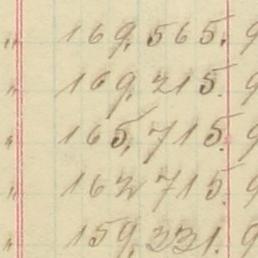 „ 169,565. 9
„ 169,215. 9
„ 165,715. 9
„ 162 715. 9
„ 159,331. 9